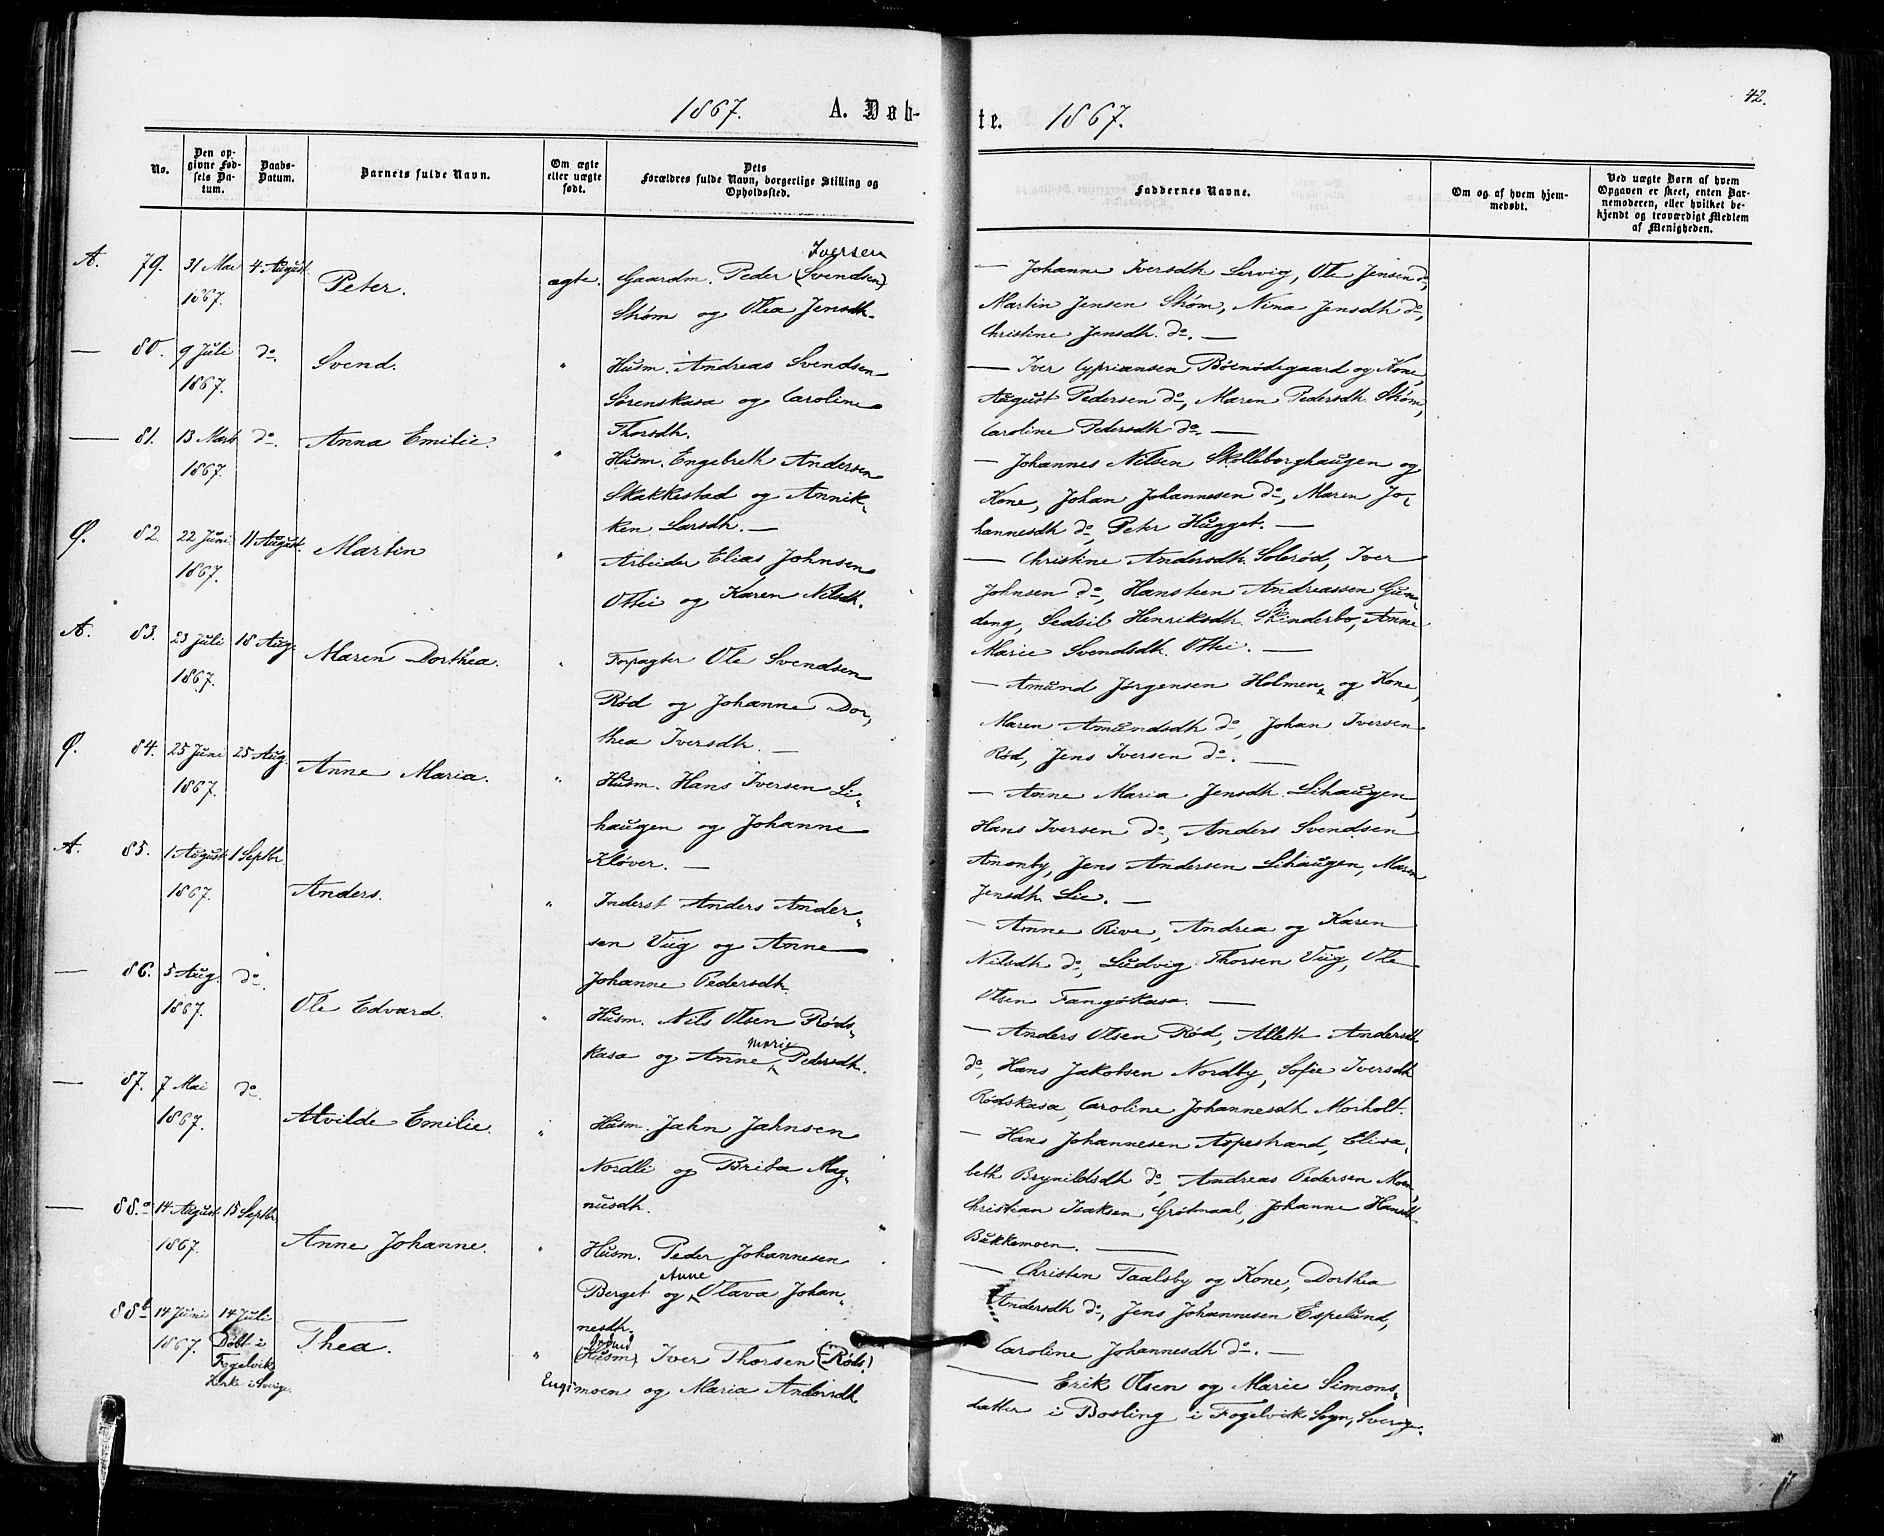 1867. A. Døb-
No.
Den op-
givne Fød-
sels Da-
tum.
Daabs-
Datum.
Barnets fulde Navn.
Om ægte
eller uægte
født.
Dets
Forældres fulde Navn, borgerlige Stilling og
Opholdssted.
A. 79. 31 Mai 4 August.
1867.
Peter.
ægte.
Iversen
Gaardm. Peder (Svendsen)
Strøm og Olea Jensdtr.
— 80. 9 Juli do.
1867.
Svend.
"
Husm. Andreas Svendsen
Sørenskasa og Caroline
Thorsdtr.
— 81. 13 Marts do.
1867.
Anna Emilie.
"
Husm. Engebreth Andersen
Skakkestad og Annik-
ken Larsdtr. —
Ø. 82. 22 Juni 11 August.
1867.
Martin
"
Arbeider Elias Johnsen
Ottei og Karen Nilsdtr.
A. 83. 23 Juli 18 Aug.
1867.
Maren Dorthea.
"
Forpagter Ole Svendsen
Rød og Johanne Dor-
thea Iversdtr. —
Ø. 84. 25 Juni 25 Aug.
1867.
Anne Maria.
"
Husm. Hans Iversen Li-
haugen og Johanne
Kløver. —
A. 85. 1 August 1 Septbr.
1867.
Anders.
"
Inderst Anders Ander-
sen Viig og Anne
Johanne Pedersdtr.
— 86. 5 Aug. do.
1867.
Ole Edvard.
"
Husm. Nils Olsen Røds-
kasa og Anne Marie Pedersdtr.
— 87. 7 Mai do.
1867.
Alvilde Emilie.
"
Husm. Jahn Jahnsen
Nordli og Brita Mag-
nusdtr.
— 88.a 14 August. 15 Septbr.
1867.
Anne Johanne.
"
Husm. Peder Johannesen
Berget og Anne Olava Johan-
nesdtr.
88b 14 Juni 14 Juli
1867. Døbt i
Fogelvik
Kirke i Sverige.
Thea.
"
(Husm) Iver Thorsen (Røds)
Engs moen og Maria Andersdtr.
te. 1867.
42.
Faddernes Navne.
Om og af hvem hjem-
medøbt.
Ved uægte Børn af hvem
Opgaven er skeet, enten Bar-
nemoderen, eller hvilket be-
kjendt og troværdigt Medlem
af Menigheden.
— Johanne Iversdtr. Lervig, Ole Jensen do,
Martin Jensen Strøm, Nina Jensdtr. do,
Christine Jensdtr. do. —
— Iver Cypriansen Bøenødegaard og Kone,
August Pedersen do, Maren Pedersdtr. Strøm,
Caroline Pedersdtr. do. —
— Johannes Nilsen Skolleborghaugen og
Kone, Johan Johannesen do, Maren Jo-
hannesdtr. do, Peter Hugget. —
— Christine Andersdtr. Solerød, Iver
Johnsen do, Hansteen Andreassen Gun-
deng, Sedsil Henriksdtr. Skinderbo, Anne
Marie Svendsdtr. Ottei. —
— Amund Jørgensen Holmen og Kone,
Maren Amundsdtr. do, Johan Iversen
Rød, Jens Iversen do. —
— Anne Maria Jensdtr. Lihaugen,
Hans Iversen do, Anders Svendsen
Anonby, Jens Andersen Lihaugen, Maren
Jensdtr. Lie. —
— Anne Rive, Andrea og Karen
Nilsdtr. do, Ludvig Thorsen Viig, Ole
Olsen Fangøkasa. —
— Anders Olsen Rød, Alleth Andersdtr.
do, Hans Jakobsen Nordby, Sofie Iversdtr.
Rødskasa, Caroline Johannesdtr. Morholt.
— Hans Johannesen Aspestrand, Elisa-
beth Brynildsdtr. do, Andreas Pedersen Moen,
Christian Isaksen Grøtmaal, Johanne Hansdtr.
Bakkemoen. —
— Christen Taalsby og Kone, Dorthea
Andersdtr. do, Jens Johannesen Espelund,
Caroline Johannesdtr. do. —
— Erik Olsen og Marie Simons-
datter i Bosling i Fogelvik Sogn, Sverige.